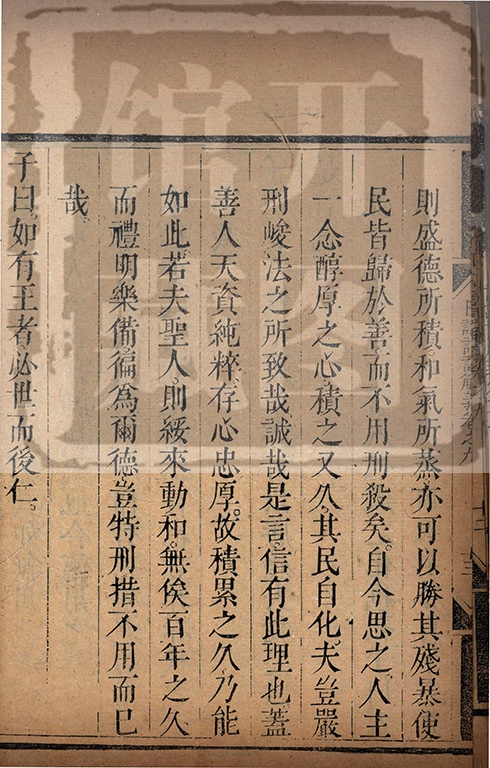 則盛德所積和氣所蒸亦可以勝其殘暴使
民皆歸於善而不用刑殺矣。自今思之人主
一念醇厚之心。積之又久。其民自化。夫豈嚴
刑峻法之所致哉誠哉是言。信有此理也。蓋
善人天資純粹存心忠厚。故積累之久乃能
如此若夫聖人。則綏來動和。無俟百年之久
而禮明樂備徧為爾德。豈特刑措不用而已
哉。
子曰。如有王者。必世而後仁。